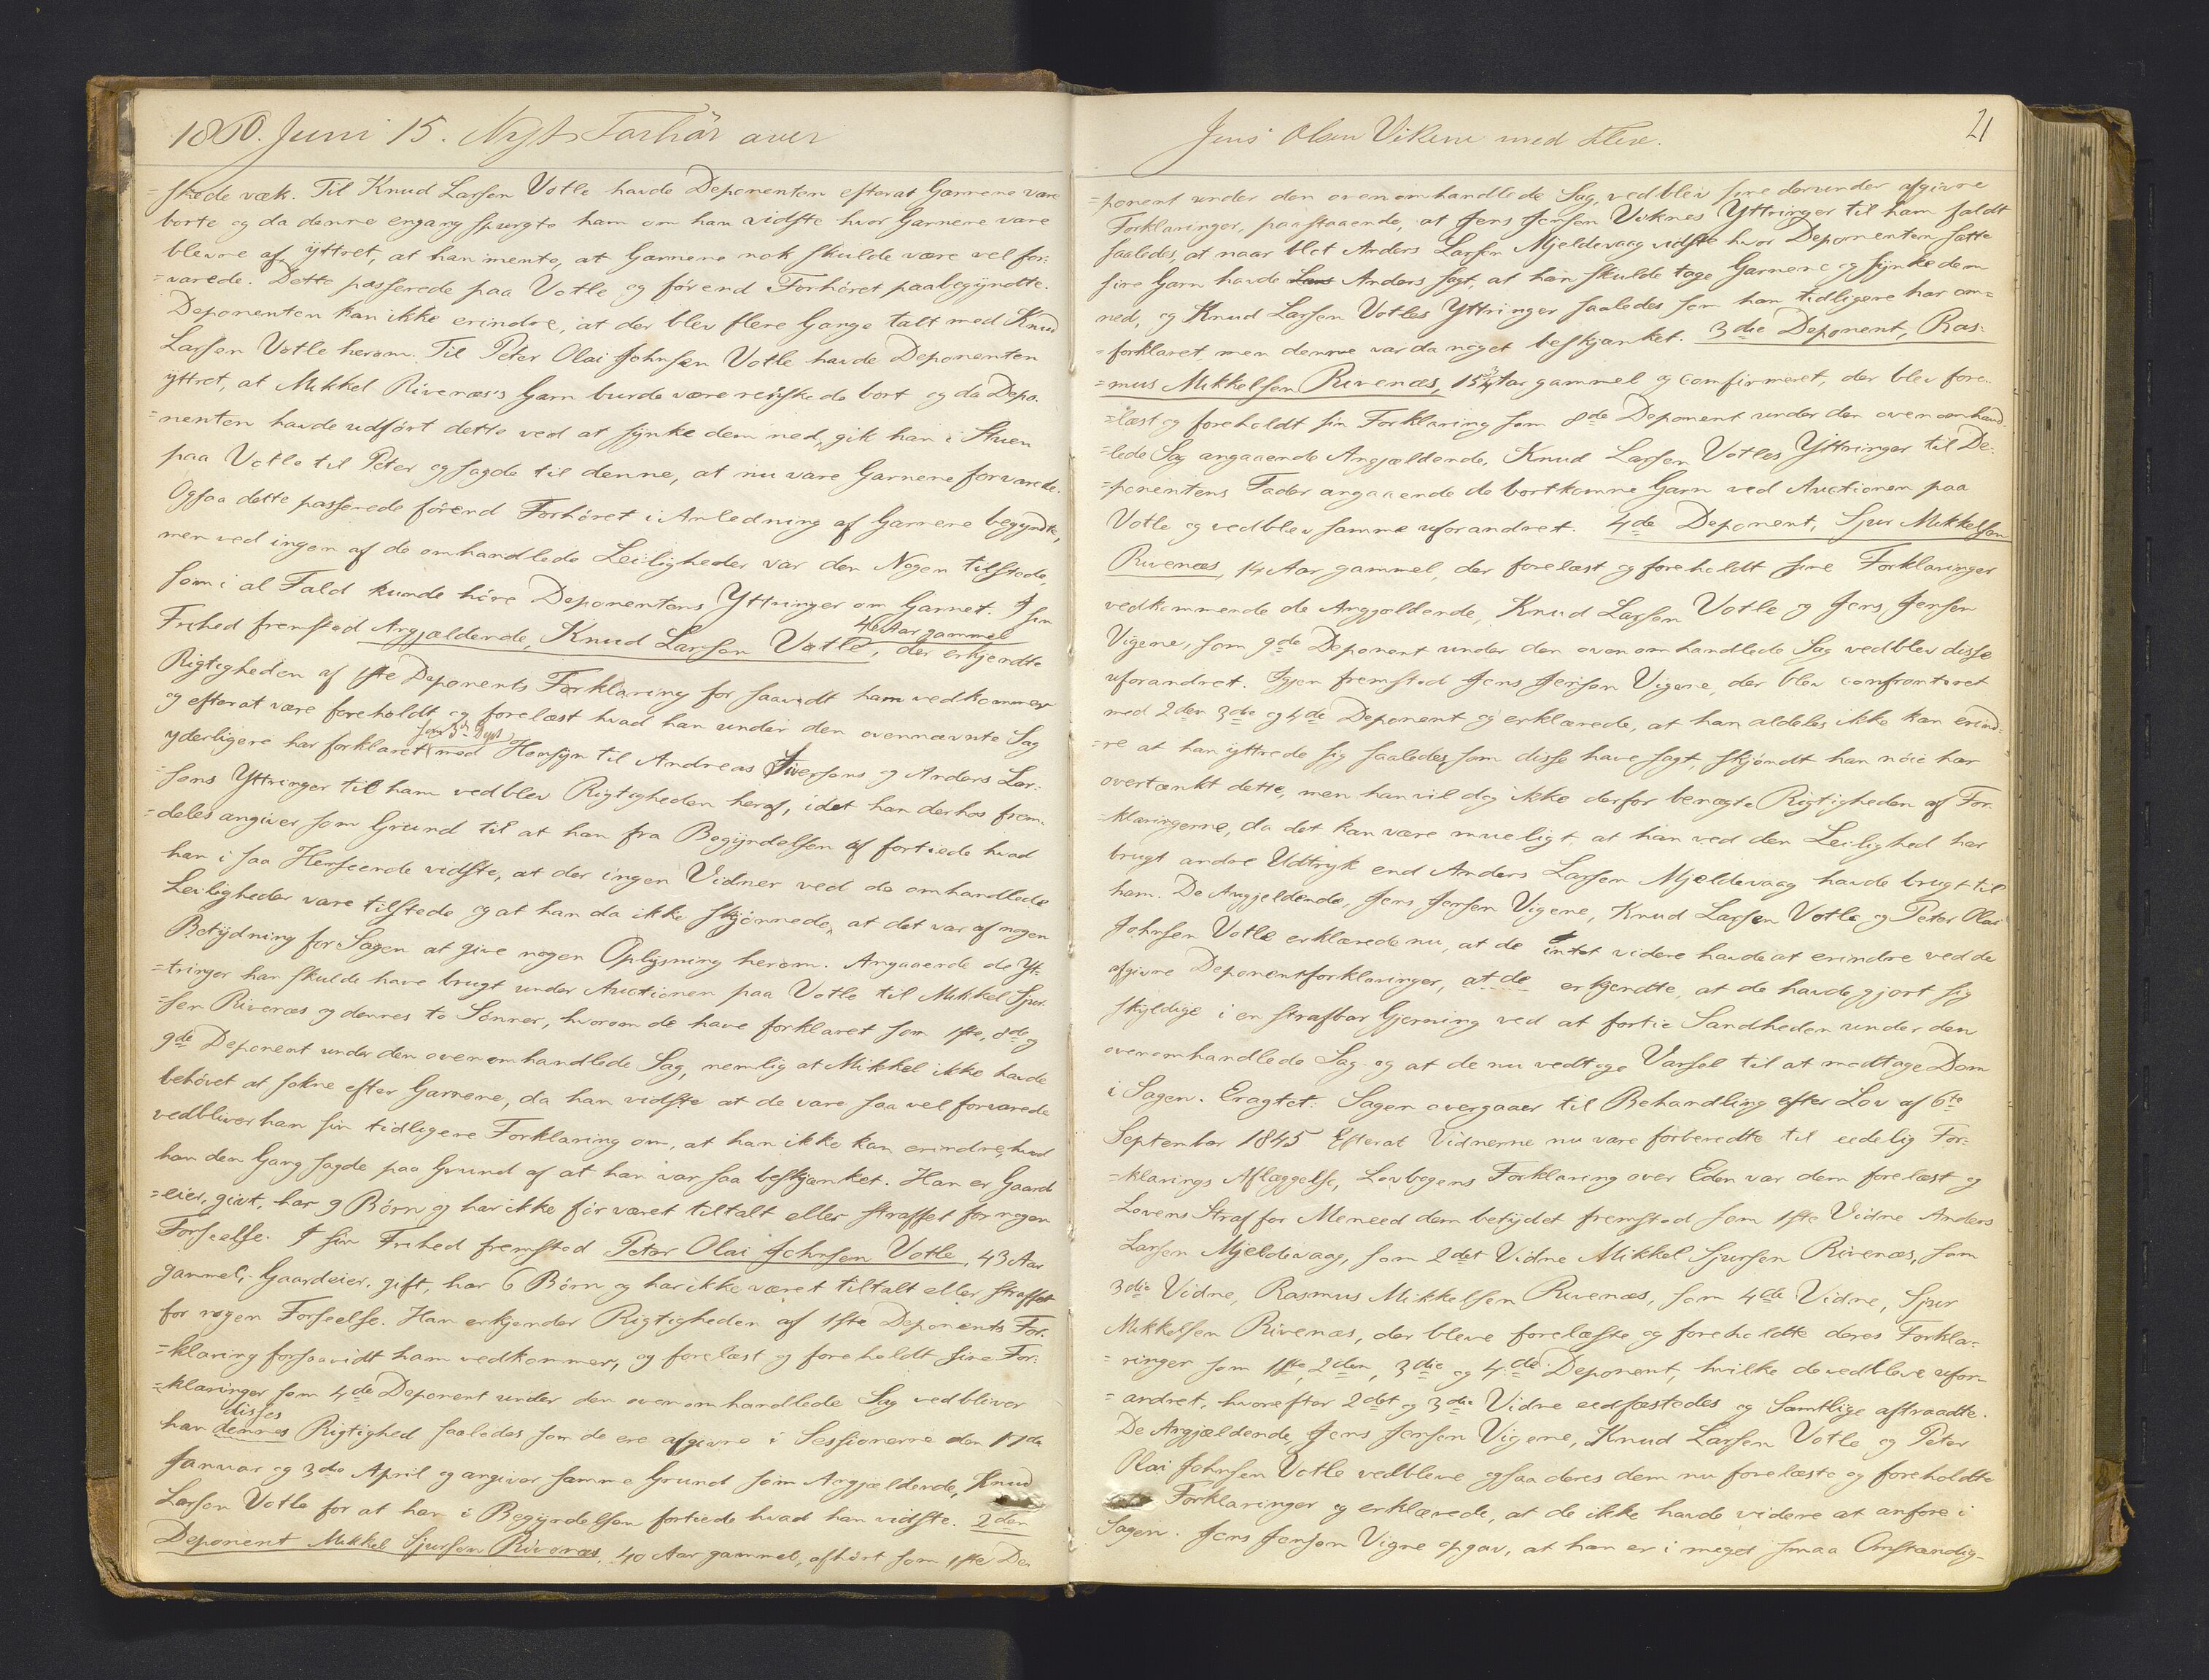 1860. Juni 15. Nyt Forhör over
=skede væk. Til Knud Larsen Votle havde Deponenten efterat Garnene vare
borte og da denne engang spurgte ham om han vidste hvor Garnene vare
blevne af, yttret, at han mente, at Garnene nok skulde være vel for=
=varede. Dette passerede paa Votle og förend Forhöret paabegyndte.
Deponenten kan ikke erindre, at der blev flere Gange talt med Knud
Larsen Votle herom. Til Peter Olai Johnsen Votle havde Deponenten
yttret, at Mikkel Rivenæs's Garn burde være röskede bort og da Depo=
=nenten havde udfört dette ved at synke dem ned, gik han i Stuen
paa Votle til Peter og sagde til denne, at nu vare Garnene forvarede.
Ogsaa dette passerede förend Forhöret i Anledning af Garnene begyndte,
men ved ingen af de omhandlede Leiligheder var der Nogen tilstede,
som i al Fald kunde höre Deponentens Yttringer om Garnet. I sin
Frihed fremstod Angjældende, Knud Larsen Votle, 46 Aar gammel, der erkjendte
Rigtigheden af 1ste Deponents Forklaring for saavidt ham vedkommer
og efterat være foreholdt og forelæst hvad han under den ovennævnte Sag
yderligere har forklaret (som 3die Depo) med Hensyn til Andreas Siversens og Anders Lar=
=sens Yttringer til ham vedblev Rigtigheden heraf, idet han derhos frem=
=deles angiver som Grund til at han fra Begyndelsen af fortiede hvad
han i saa Henseende vidste, at der ingen Vidner ved de omhandlede
Leiligheder vare tilstede og at han da ikke skjönnede, at det var af nogen
Betydning for Sagen at give nogen Oplysning herom. Angaaende de Yt=
=tringer han skulde have brugt under Auctionen paa Votle til Mikkel Sjur=
=sen Rivenæs og dennes to Sönner, hvorom de have forklaret som 1ste, 8de og
9de Deponent under den ovenomhandlede Sag, nemlig at Mikkel ikke havde
behövet at sokne efter Garnene, da han vidste at de vare saa vel forvarede
vedbliver han sin tidligere Forklaring om, at han ikke kan erindre, hvad
han den Gang sagde paa Grund af at han var saa beskjænket. Han er Gaard
=eier, givt, har 9 Börn og har ikke för været tiltalt eller straffet for nogen
Forseelse. I sin Frihed fremstod Peter Olai Johnsen Votle, 43 Aar
gammel, Gaardeier, gift, har 6 Börn og har ikke været tiltalt eller straffet
for nogen Forseelse. Han erkjender Rigtigheden af 1ste Deponents For=
=klaring forsaavidt ham vedkommer, og forelæst og foreholdt sine For=
=klaringer som 4de Deponent under den ovenomhandlede Sag vedbliver
han dennes disses Rigtighed saaledes som de ere afgivne i Sessionerne den 17de
Januar og 3die April og angiver samme Grund som Angjældende, Knud
Larsen Votle for at han i Begyndelsen fortiede hvad han vidste. 2den
Deponent Mikkel Sjursen Rivenæs, 40 Aar gammel, afhört som 1ste De=
Jens Olsen Vikene med Flere.
21
=ponent under den ovenomhandlede Sag, vedblev sine derunder afgivne
Forklaringer, paastaaende, at Jens Jensen Viknes Yttringer til ham faldt
saaledes, at naar blot Anders Larsen Mjeldevaag vidste hvor Deponenten satte
sine Garn havde Lars Anders sagt, at han skulde tage Garnene og synke dem
ned, og Knud Larsen Votles Yttringer saaledes som han tidligere har om=
=forklaret, men denne var da noget beskjænket. 3die Deponent, Ras=
=mus Mikkelsen Rivenæs, 15 3/4 Aar gammel og confirmeret, der blev fore=
=læst og foreholdt sin Forklaring som 8de Deponent under den ovenomhand=
=lede Sag angaaende Angjældende, Knud Larsen Votles Yttringer til De=
=ponentens Fader angaaende de bortkomne Garn ved Auctionen paa
Votle og vedblev samme uforandret. 4de Deponent, Sjur Mikkelsen
Rivenæs, 14 Aar gammel, der forelæst og foreholdt sine Forklaringer
vedkommende de Angjældende, Knud Larsen Votle og Jens Jensen
Vigene, som 9de Deponent under den ovenomhandlede Sag vedblev disse
uforandret. Igjen fremstod Jens Jensen Vigene, der blev confronteret
med 2den 3die og 4de Deponent og erklærede, at han aldeles ikke kan erind=
=re at han yttrede sig saaledes som disse have sagt, skjöndt han nöie har
overtænkt dette, men han vil dog ikke derfor benægte Rigtigheden af For=
=klaringerne, da det kan være mueligt, at han ved den Leilighed har
brugt andre Udtryk end Anders Larsen Mjeldevaag havde brugt til
ham. De Angjeldende, Jens Jensen Vigene, Knud Larsen Votle og Peter Olai
Johnsen Votle erklærede nu, at de intet videre havde at erindre ved de
afgivne Deponentforklaringer, at de erkjendte, at de havde gjort sig
skyldige i en strafbar Gjerning ved at fortie Sandheden under den
ovenomhandlede Sag og at de nu vedtoge Varsel til at modtage Dom
i Sagen. Eragtet: Sagen overgaaer til Behandling efter Lov af 6te
September 1845 Efterat Vidnerne nu vare forberedte til eedelig For=
=klarings Aflæggelse, Lovbogens Forklaring over Eden var dem forelæst og
Lovens Straf for Meneed dem betydet fremstod som 1ste Vidne Anders
Larsen Mjeldevaag, som 2det Vidne Mikkel Sjursen Rivenæs, som
3die Vidne, Rasmus Mikkelsen Rivenæs, som 4de Vidne, Sjur
Mikkelsen Rivenæs, der bleve forelæste og foreholdte deres Forkla=
=ringer som 1ste, 2den, 3die og 4de Deponent, hvilke de vedbleve ufor=
=andret, hvorefter 2det og 3die Vidne eedfæstedes og Samtlige aftraadte.
De Angjældende, Jens Jensen Vigene, Knud Larsen Votle og Peter
Olai Johnsen Votle vedbleve ogsaa deres dem nu forelæste og foreholdte
Forklaringer og erklærede, at de ikke havde videre at anföre i
Sagen. Jens Jensen Vigne opgav, at han er i meget smaa Omstændig=